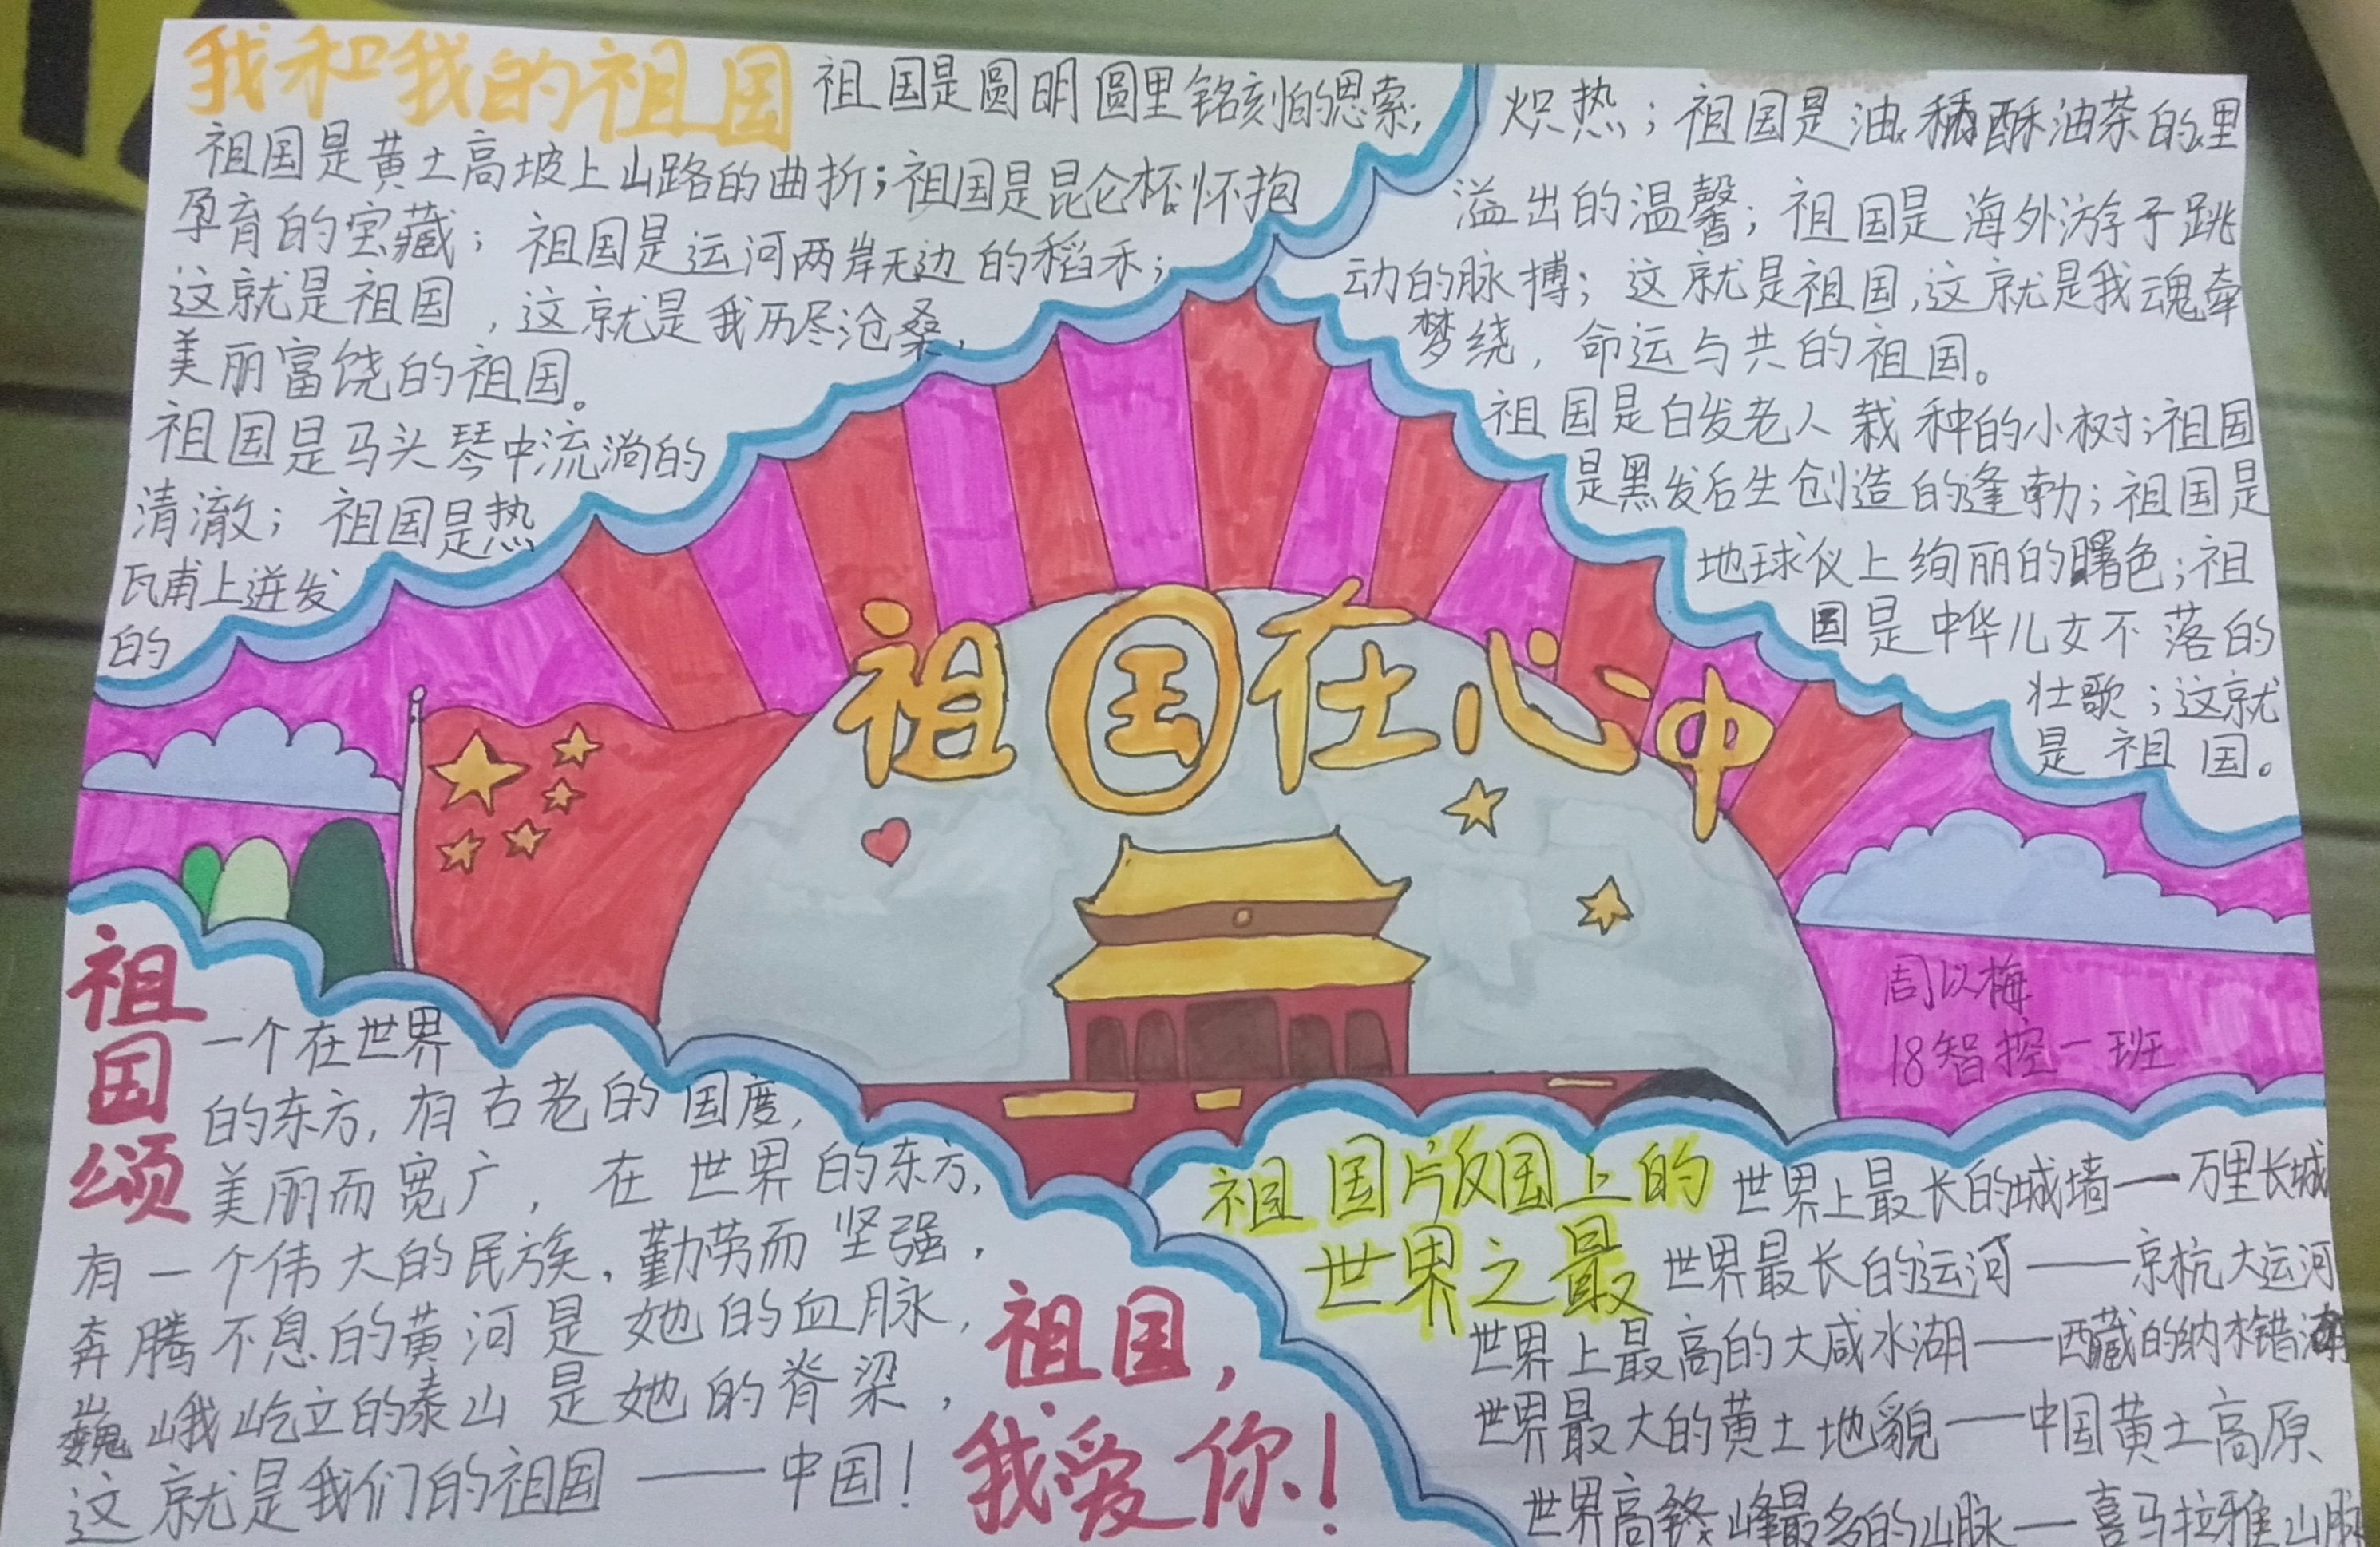 我和我的祖国
祖国是圆明圆里铭刻的思索;
祖国是黄土高坡上山路的曲折;祖国是昆仑杯怀抱
孕育的宝藏;祖国是运河两岸无边的稻禾;
这就是祖国,这就是我历尽沧桑,
美丽富饶的祖国。
祖国是马头琴中流淌的
清澈;祖国是热
瓦甫上迸发
的
炽热;祖国是油酥油茶的里
溢出的温馨;祖国是海外游子跳
动的脉搏;这就是祖国,这就是我魂牵
梦绕,命运与共的祖国。
祖国是白发老人栽种的小树;祖国
是黑发后生创造的蓬勃;祖国是
地球仪上绚丽的曙色;祖
国是中华儿女不落的
壮歌;这就
是祖国。
祖国在心中
周以梅
18智控一班
祖国颂
一个在世界
的东方,有古老的国度,
美丽而宽广,在世界的东方,
有一个伟大的民族,勤劳而坚强,
奔腾不息的黄河是她的血脉,
巍峨屹立的泰山是她的脊梁,
这就是我们的祖国——中国!
祖国,
我爱你!
祖国版国上的
世界之最
世界上最长的城墙—万里长城
世界最长的运河——京杭大运河
世界上最高的大咸水湖——西藏的纳木错湖
世界最大的黄土地貌——中国黄土高原
世界高峰最多的山脉—喜马拉雅山脉